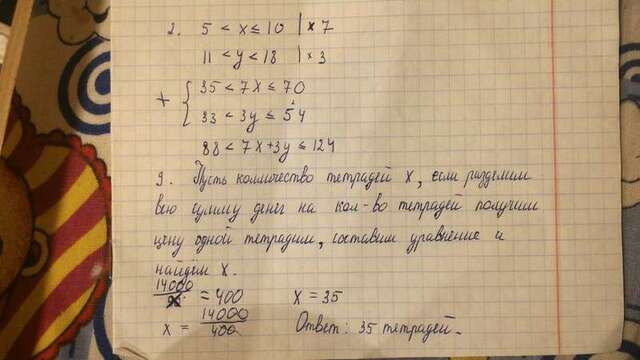 2. 5 < x ≤ 10 | × 7
11 < y < 18 | × 3
+ { 35 < 7x ≤ 70
33 < 3y ≤ 54
88 < 7x + 3y ≤ 124
9. Пусть количество тетрадей x, если разделим
всю сумму денег на кол-во тетрадей получим
цену одной тетрадии, составим уравнение и
найдём x.
14000/x = 400 x = 35
x = 14000/400 Ответ: 35 тетрадей.